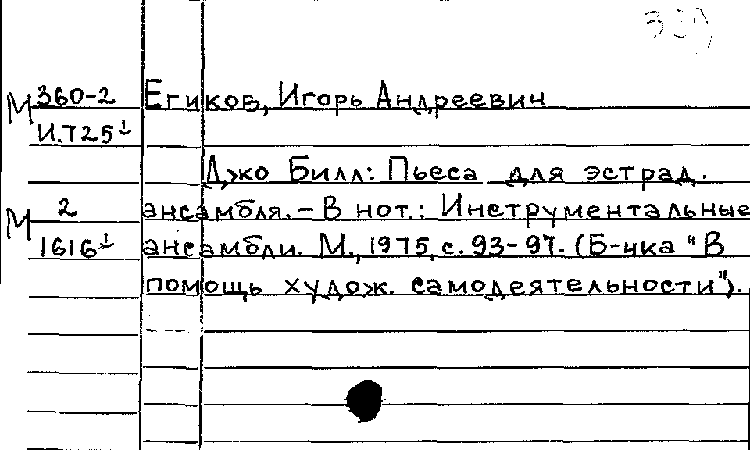 М 360-2 Егиков, Игорь Андреевич
И.725
Джо Билл: Пьеса для эстрад.
М 2 ансамбля. - В нот.: Инструментальные
1616 ансамбли. М., 1975, с. 93-97. (Б-чка "В
помощь худож. самодеятельности").